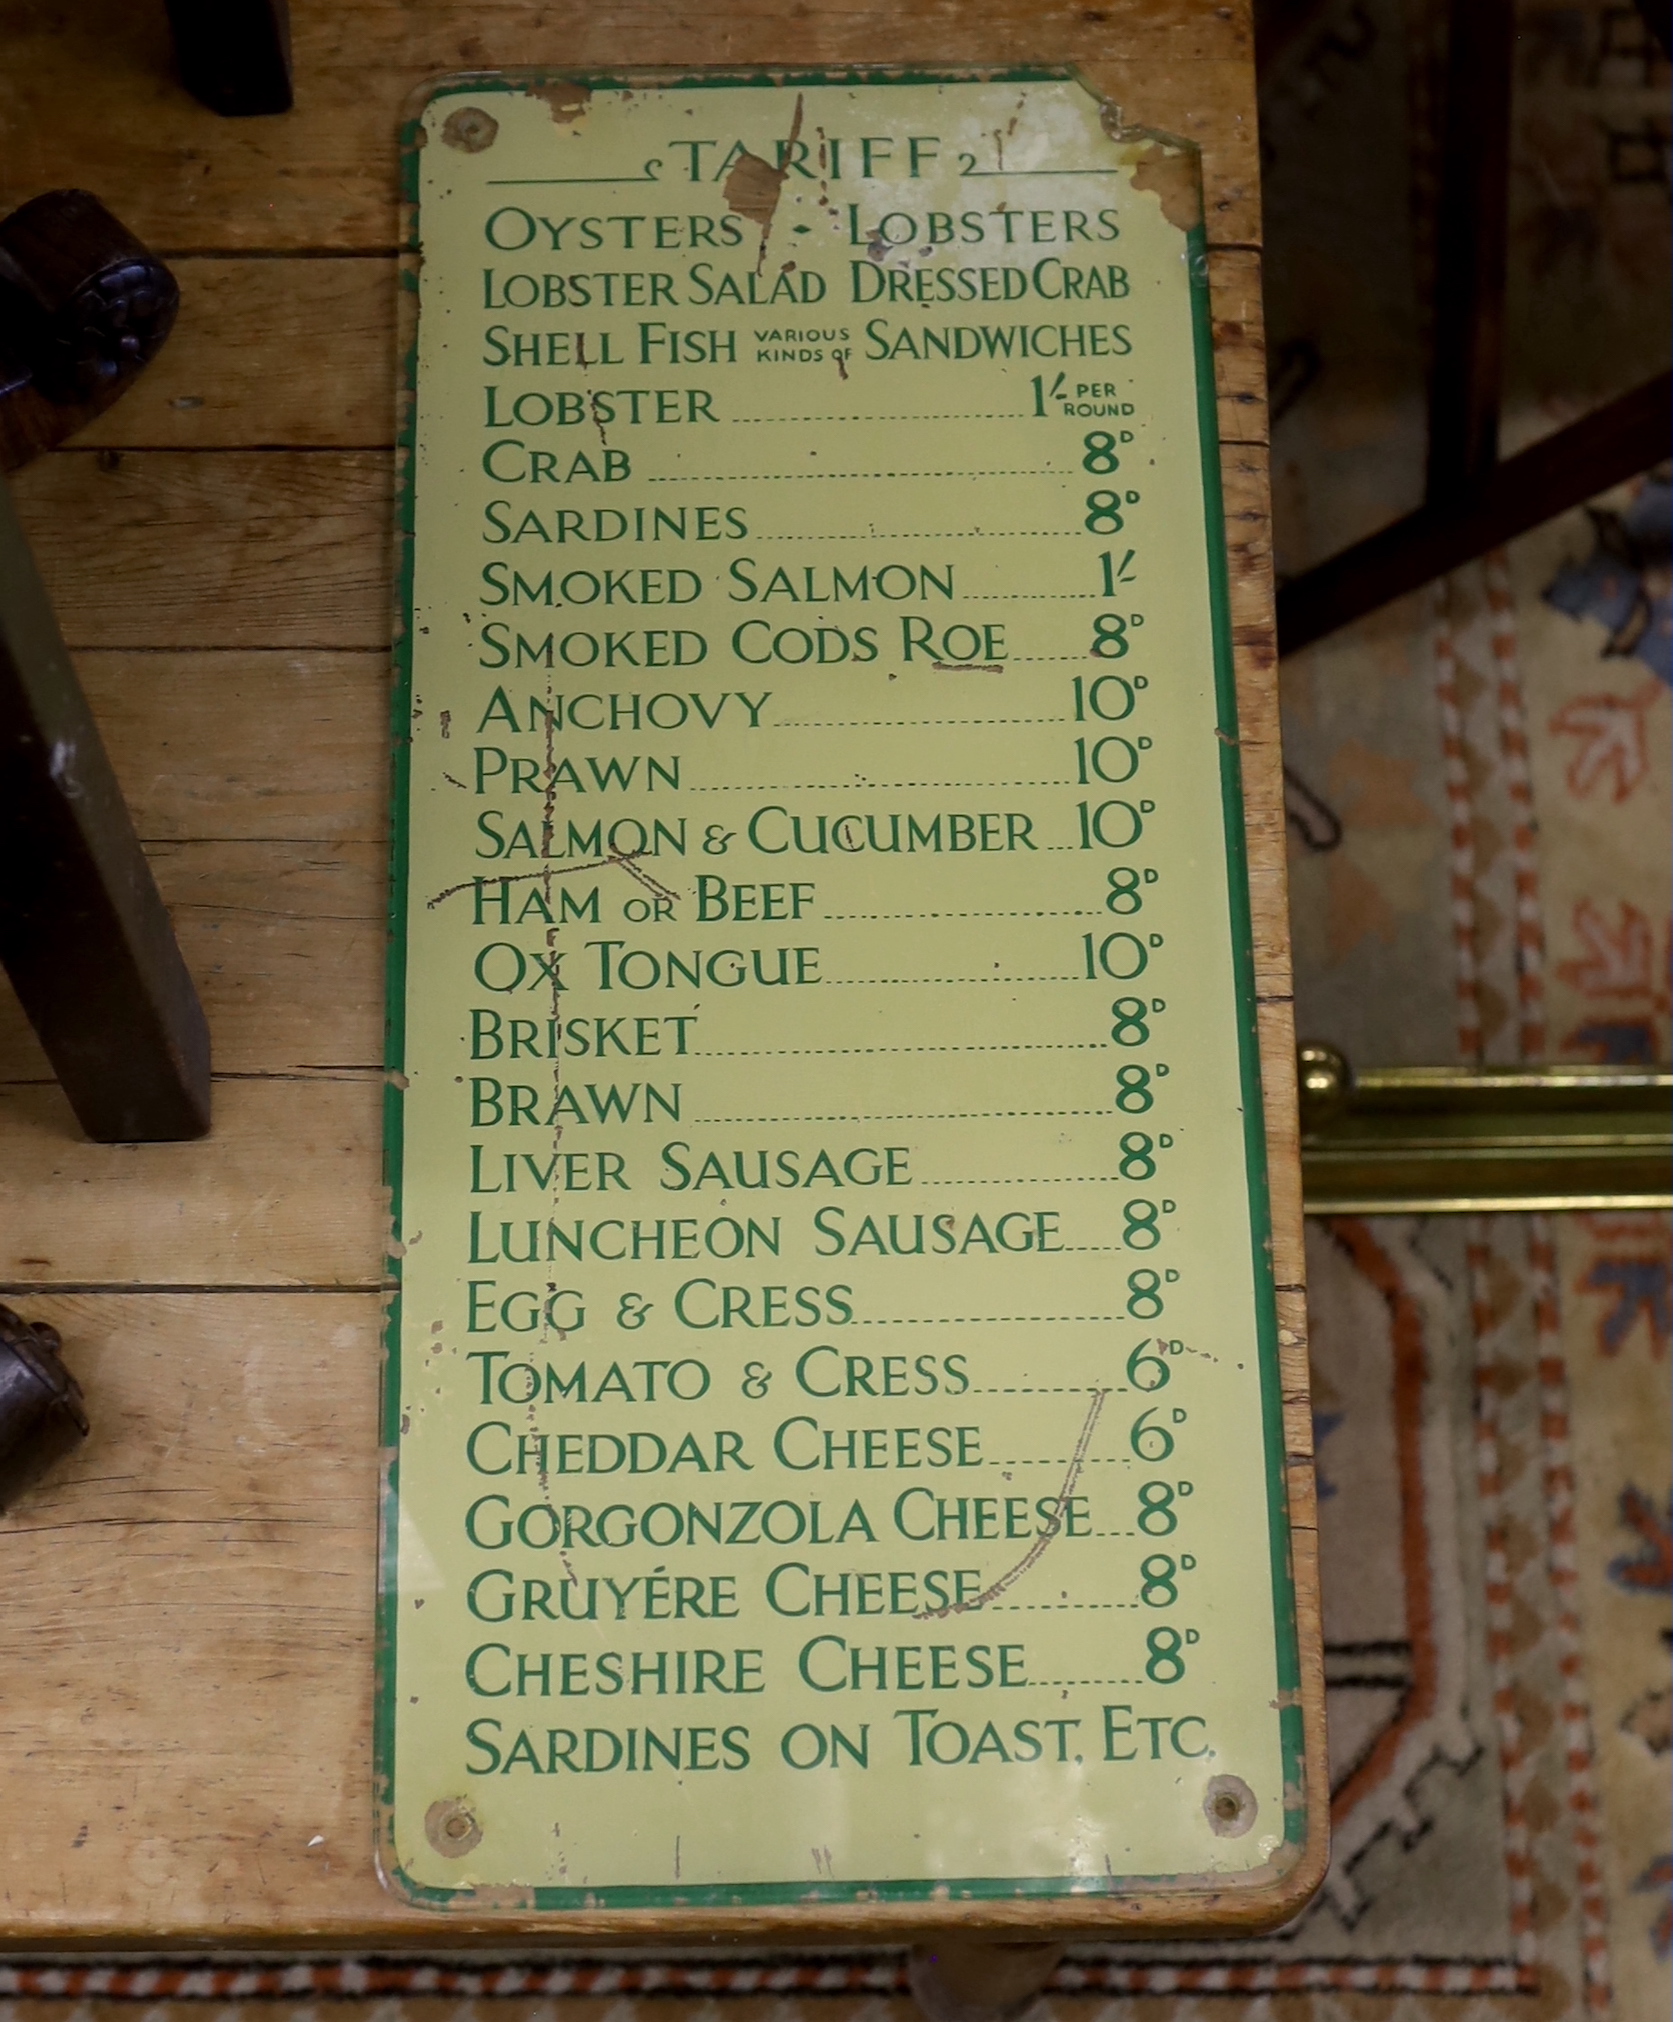 TARIFF
OYSTERS · LOBSTERS
LOBSTER SALAD DRESSED CRAB
SHELL FISH VARIOUS KINDS OF SANDWICHES
LOBSTER 1/- PER ROUND
CRAB 8D
SARDINES 8D
SMOKED SALMON 1/-
SMOKED CODS ROE 8D
ANCHOVY 10D
PRAWN 10D
SALMON & CUCUMBER 10D
HAM OR BEEF 8D
OX TONGUE 10D
BRISKET 8D
BRAWN 8D
LIVER SAUSAGE 8D
LUNCHEON SAUSAGE 8D
EGG & CRESS 8D
TOMATO & CRESS 6D
CHEDDAR CHEESE 6D
GORGONZOLA CHEESE 8D
GRUYÉRE CHEESE 8D
CHESHIRE CHEESE 8D
SARDINES ON TOAST, ETC.